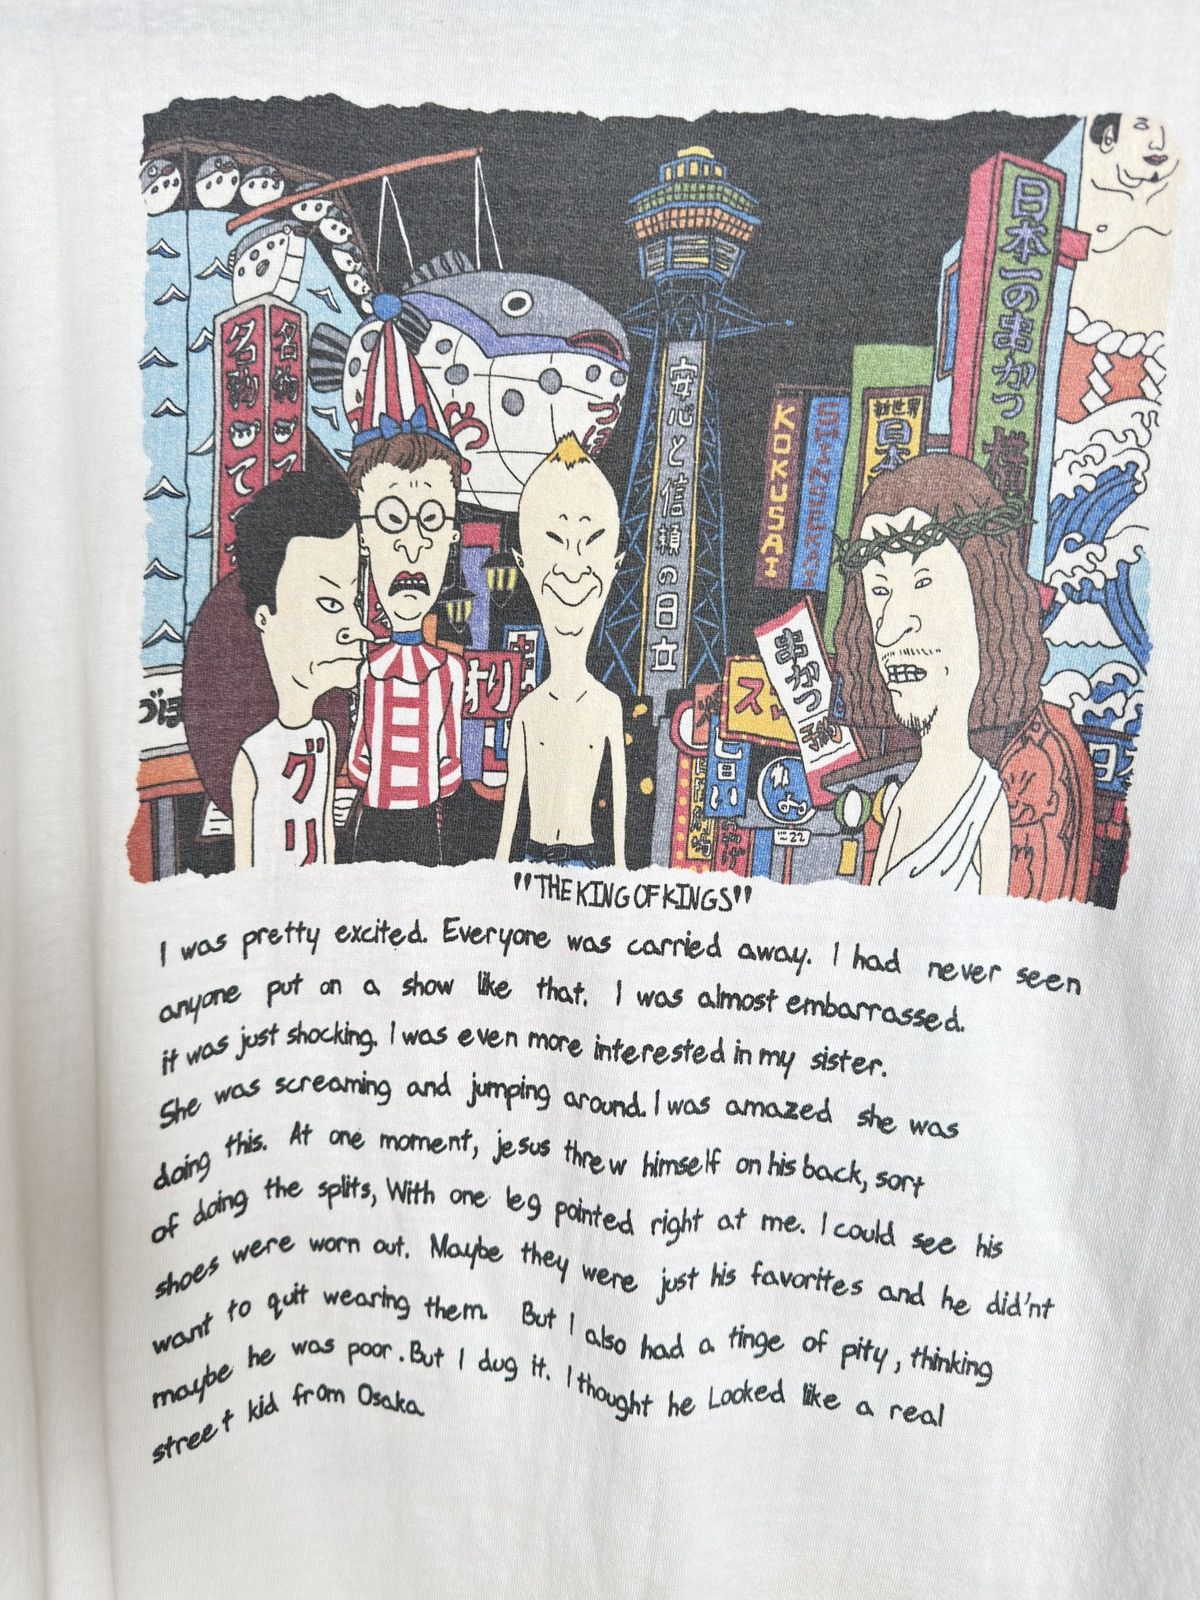 日本一の串かつ 横綱
名物
名物
て
づぼ
づ
安心と信頼の日立
KOKUSAI
SHINSEKAI
新世界
日本
串かつ
スト
グリ
22
"THE KING OF KINGS"
I was pretty excited. Everyone was carried away. I had never seen
anyone put on a show like that. I was almost embarrassed.
it was just shocking. I was even more interested in my sister.
She was screaming and jumping around. I was amazed she was
doing this. At one moment, jesus threw himself on his back, sort
of doing the splits, With one leg pointed right at me. I could see his
shoes were worn out. Maybe they were just his favorites and he did'nt
want to quit wearing them. But I also had a tinge of pity, thinking
maybe he was poor. But I dug it. I thought he Looked like a real
street kid from Osaka